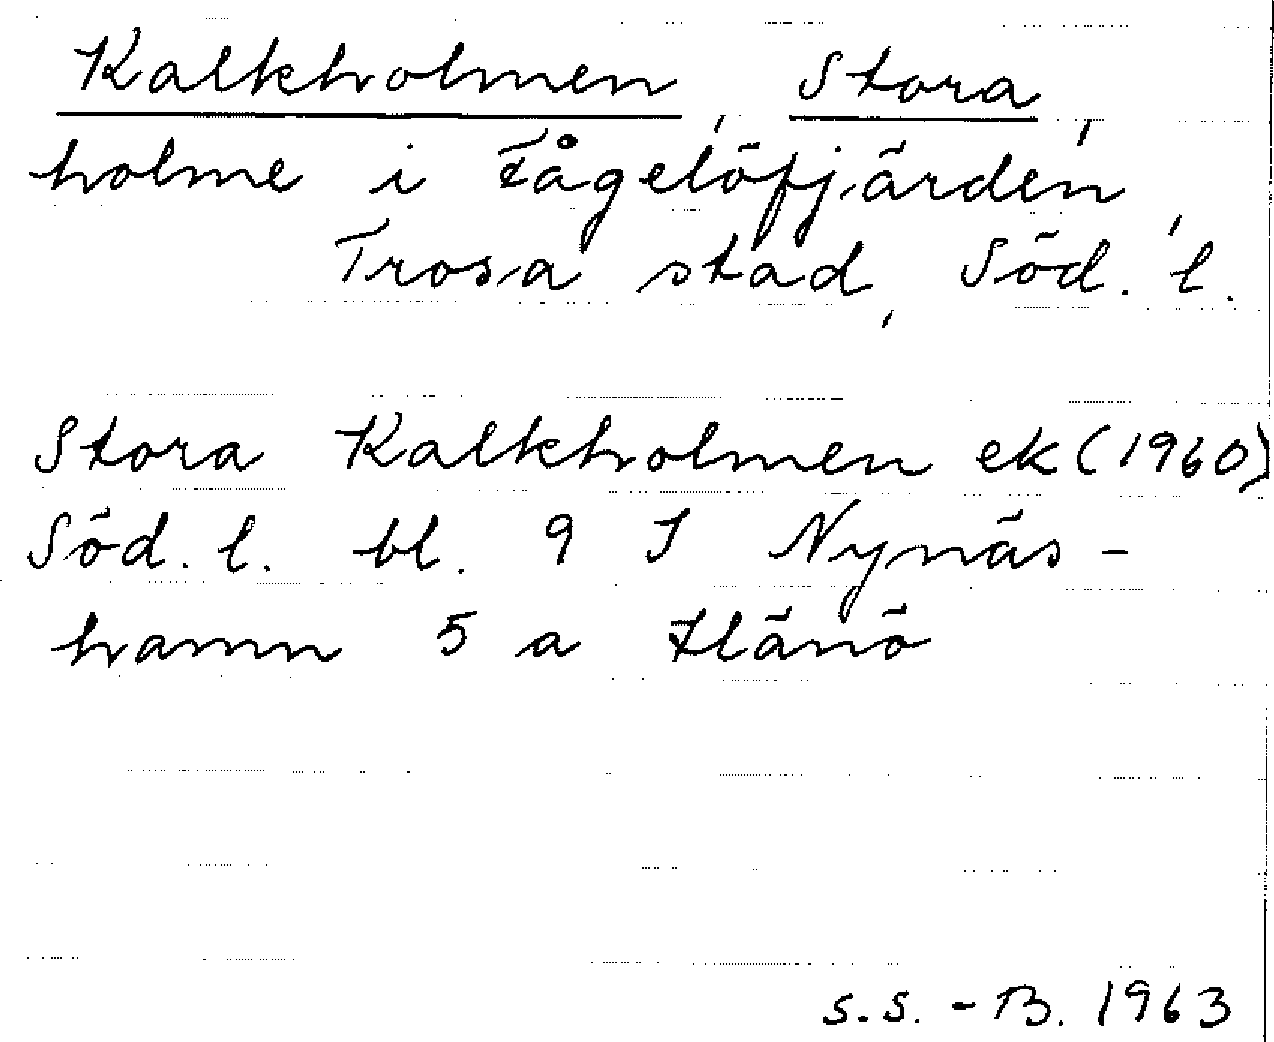 Kalkholmen, Stora,
holme i Fågelöfjärden,
Trosa stad, Söd. l.
Stora Kalkholmen ek (1960)
Söd. l. bl. 9 I Nynäs-
hamn 5 a Hänö
S.S.-B. 1963